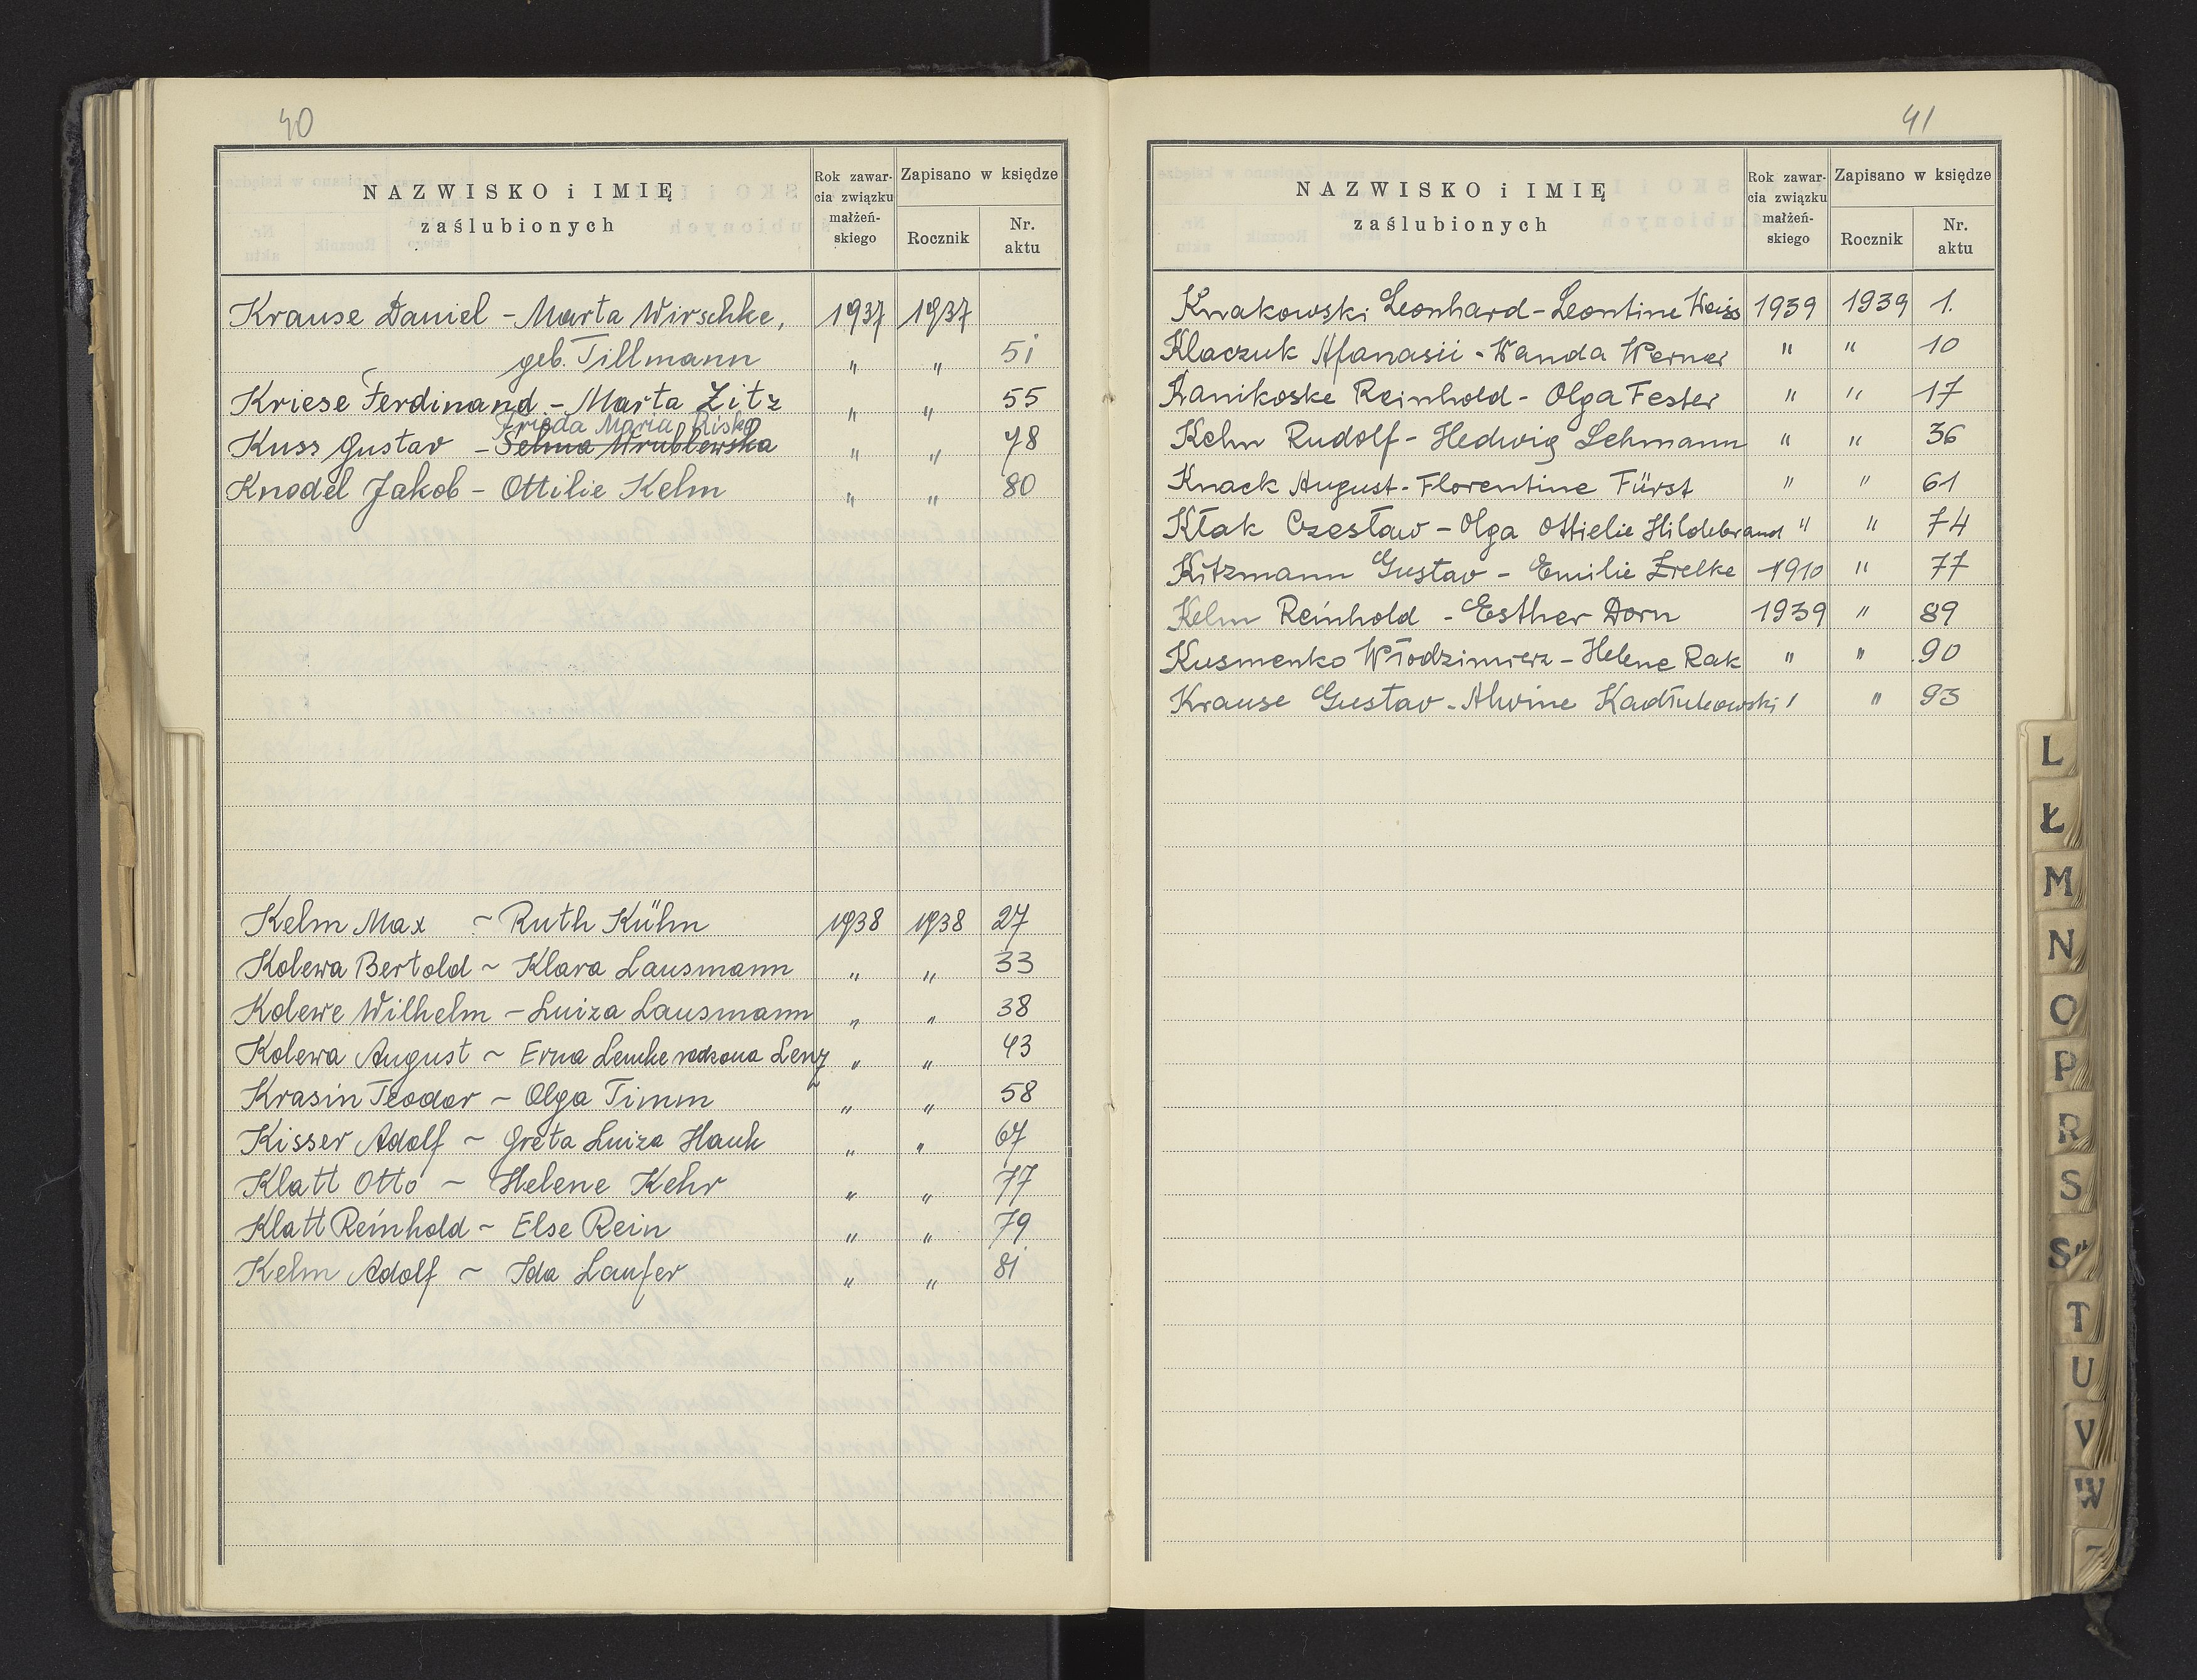 40
NAZWISKO i IMIĘ
zaślubionych
Rok zawar-
cia związku
małżeń-
skiego
Zapisano w księdze
Rocznik
Nr.
aktu
Krause Daniel - Marta Wirschke, 1937 1937
geb. Tillmann " " 51
Kriese Ferdinand - Marta Zitz " " 55
Frieda Maria Riske
Kuss Gustav - Selma Wrublewska " " 78
Knodel Jakob - Ottilie Kelm " " 80
Kelm Max ~ Ruth Kühn 1938 1938 27
Kolewa Bertold ~ Klara Lausmann " " 33
Kolewe Wilhelm - Luiza Lausmann " " 38
Kolewa August ~ Erna Lemke rodzona Lenz " " 43
Krasin Teodor ~ Olga Timm " " 58
Kisser Adolf ~ Greta Luiza Hauk " " 67
Klatt Otto ~ Helene Kehr " " 77
Klatt Reinhold ~ Else Rein " " 79
Kelm Adolf ~ Ida Laufer " " 81
41
NAZWISKO i IMIĘ
zaślubionych
Rok zawar-
cia związku
małżeń-
skiego
Zapisano w księdze
Rocznik
Nr.
aktu
Knakowski Leonhard - Leontine Weiss 1939 1939 1.
Klaczuk Afanasii - Wanda Werner " " 10
Kanikoske Reinhold - Olga Fester " " 17
Kehn Rudolf - Hedwig Lehmann " " 36
Knack August - Florentine Fürst " " 61
Kłak Czesław - Olga Ottielie Hildebrand " " 74
Kitzmann Gustav - Emilie Zielke 1910 " 77
Kelm Reinhold - Esther Dorn 1939 " 89
Kusmenko Włodzimierz - Helene Rak " " 90
Krause Gustav - Alwine " 93
L
Ł
M
N
O
P
R
S
Ś
T
U
V
W